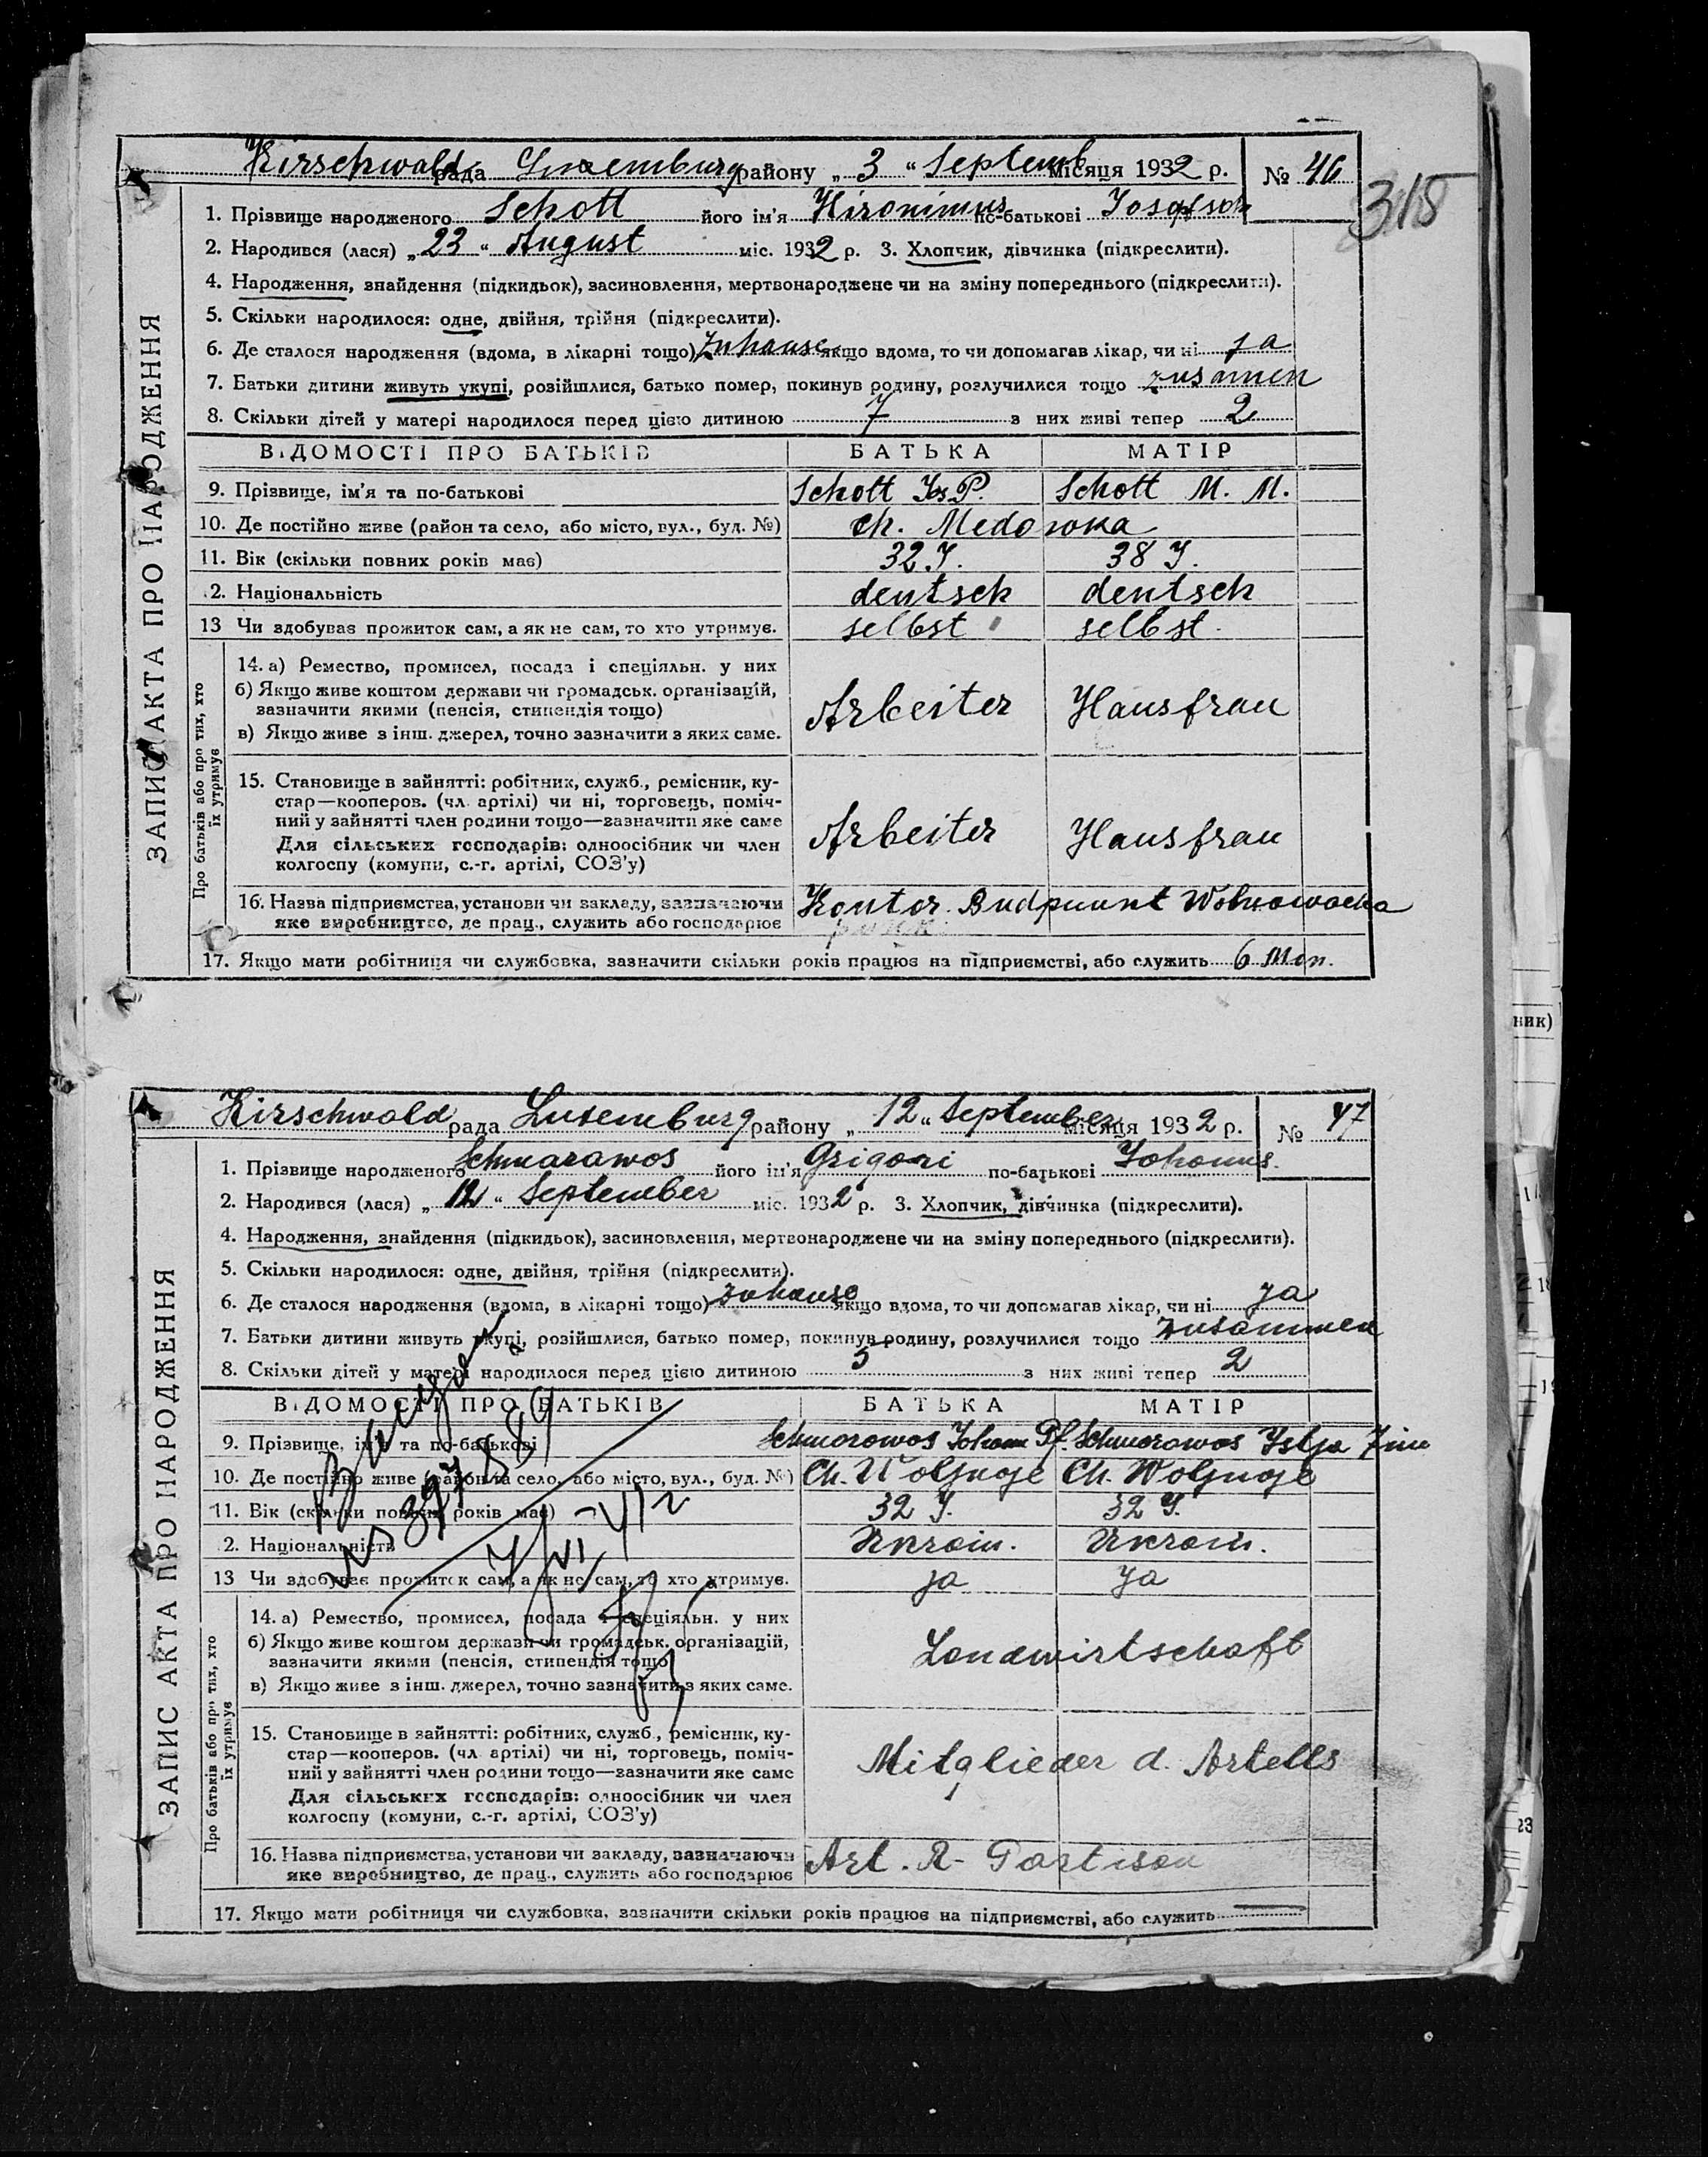 Kirschwald рада Luxemburg району „ 3 “ Septemb місяця 1932 р. № 46
315
ЗАПИС АКТА ПРО НАРОДЖЕННЯ
1. Прізвище народженого Schott його ім'я Hironimus по-батькові Josefsoh
2. Народився (лася) „ 23 “ August міс. 1932 р. 3. Хлопчик, дівчинка (підкреслити).
4. Народження, знайдення (підкидьок), засиновлення, мертвонароджене чи на зміну попереднього (підкреслити).
5. Скільки народилося: одне, двійня, трійня (підкреслити).
6. Де сталося народження (вдома, в лікарні тощо) Zuhause якщо вдома, то чи допомагав лікар, чи ні ja
7. Батьки дитини живуть укупі, розійшлися, батько помер, покинув родину, розлучилися тощо zusamen
8. Скільки дітей у матері народилося перед цією дитиною 7 з них живі тепер 2
ВІДОМОСТІ ПРО БАТЬКІВ БАТЬКА МАТІР
9. Прізвище, ім'я та по-батькові Schott Jos P. Schott M. M.
10. Де постійно живе (район та село, або місто, вул., буд. №) ch. Medowka
11. Вік (скільки повних років має) 32 J. 38 J.
2. Національність deutsch deutsch
13 Чи здобував прожиток сам, а як не сам, то хто утримує. selbst selbst
Про батьків або про тих, хто їх утримує
14. а) Ремество, промисел, посада і спеціяльн. у них
б) Якщо живе коштом держави чи громадськ. організацій,
зазначити якими (пенсія, стипендія тощо) Arbeiter Hausfrau
в) Якщо живе з інш. джерел, точно зазначити з яких саме.
15. Становище в зайнятті: робітник, служб., ремісник, ку-
стар—кооперов. (чл. артілі) чи ні, торговець, поміч-
ний у зайнятті член родини тощо—зазначити яке саме Arbeiter Hausfrau
Для сільських господарів: одноосібник чи член
колгоспу (комуни, с.-г. артілі, СОЗ'у)
16. Назва підприємства, установи чи закладу, зазначаючи Kontor. Budpunkt Wolnowacha
яке виробництво, де прац., служить або господарює
17. Якщо мати робітниця чи службовка, зазначити скільки років працює на підприємстві, або служить 6 Mon.
ник)
Kirschwald рада Luxemburg району „ 12 “ September місяця 1932 р. № 47
ЗАПИС АКТА ПРО НАРОДЖЕННЯ
1. Прізвище народженого Schmarawos його ім'я Grigori по-батькові Johanns.
2. Народився (лася) „ 12 “ September міс. 1932 р. 3. Хлопчик, дівчинка (підкреслити).
4. Народження, знайдення (підкидьок), засиновлення, мертвонароджене чи на зміну попереднього (підкреслити).
5. Скільки народилося: одне, двійня, трійня (підкреслити).
6. Де сталося народження (вдома, в лікарні тощо) zuhause якщо вдома, то чи допомагав лікар, чи ні ja
7. Батьки дитини живуть укупі, розійшлися, батько помер, покинув родину, розлучилися тощо zusammen
8. Скільки дітей у матері народилося перед цією дитиною 5 з них живі тепер 2
ВІДОМОСТІ ПРО БАТЬКІВ БАТЬКА МАТІР
9. Прізвище, ім'я та по-батькові Schmorowos Johann Schmorawos
10. Де постійно живе (район та село, або місто, вул., буд. №) Ch. Woljnoje Ch. Woljnoje
11. Вік (скільки повних років має) 32 J. 32 J.
2. Національність Ukrain. Ukrain.
13 Чи здобуває прожиток сам, а як не сам, то хто утримує. ja ja
Про батьків або про тих, хто їх утримує
14. а) Ремество, промисел, посада і спеціяльн. у них
б) Якщо живе коштом держави чи громадськ. організацій,
зазначити якими (пенсія, стипендія тощо) Landwirtschaft
в) Якщо живе з інш. джерел, точно зазначити з яких саме.
15. Становище в зайнятті: робітник, служб., ремісник, ку-
стар—кооперов. (чл. артілі) чи ні, торговець, поміч-
ний у зайнятті член родини тощо—зазначити яке саме Mitglieder d. Artells
Для сільських господарів: одноосібник чи член
колгоспу (комуни, с.-г. артілі, СОЗ'у)
16. Назва підприємства, установи чи закладу, зазначаючи Art. R- Partisan
яке виробництво, де прац., служить або господарює
17. Якщо мати робітниця чи службовка, зазначити скільки років працює на підприємстві, або служить
23